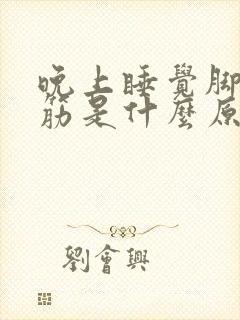 晚上睡覺腳
筋是什麼原
劉會興